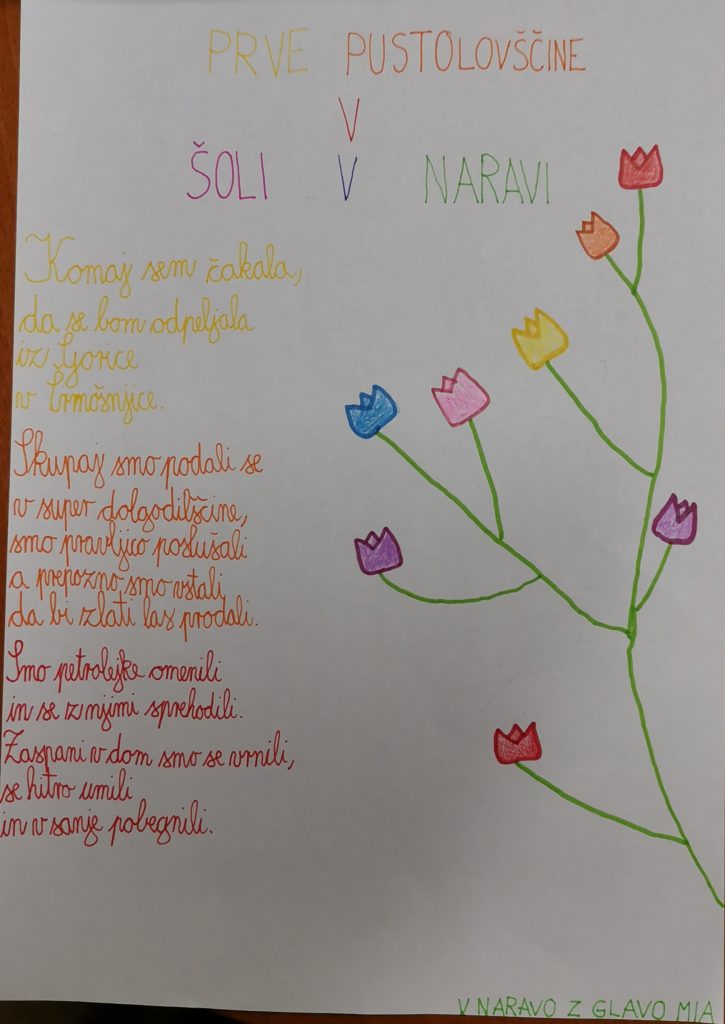 PRVE PUSTOLOVŠČINE
V
ŠOLI V NARAVI
Komaj sem čakala,
da se bom odpeljala
iz Gorice
v Črmošnjice.
Skupaj smo podali se
v super dolgodilščine,
smo pravljico poslušali
a prepozno smo vstali
da bi zlati las prodali.
Smo petrolejke omenili
in se z njimi sprehodili.
Zaspani v dom smo se vrnili,
se hitro umili
in v sanje pobegnili.
V NARAVO Z GLAVO MIA